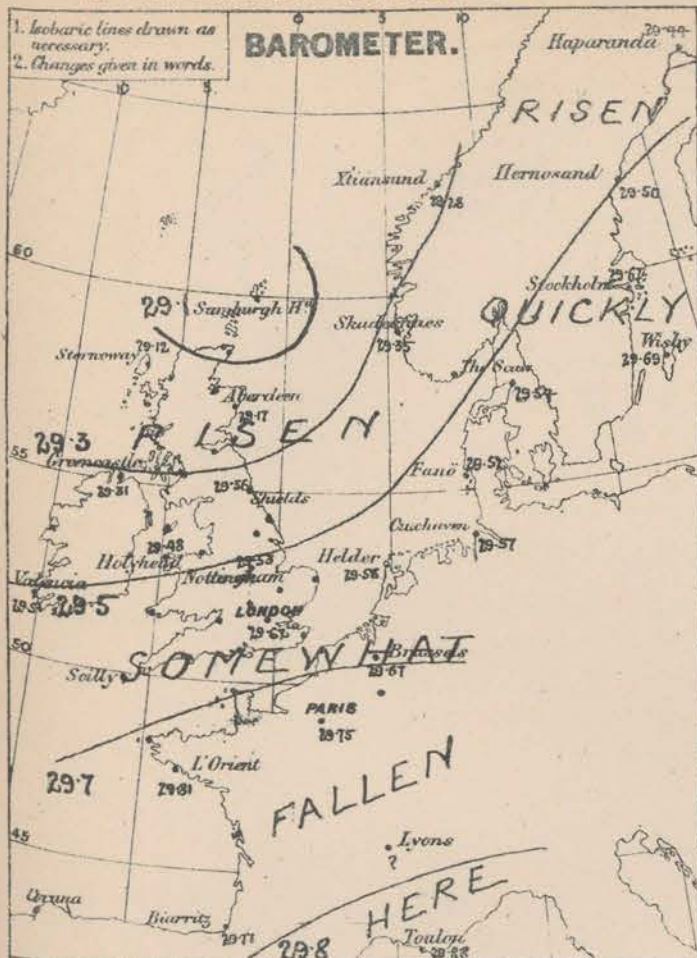 1. Isobaric lines drawn as
necessary.
2. Changes given in words.
BAROMETER.
29.44
Haparanda
10
5
0
5
10
RISEN
Xtiansund
Hernosand
29.28
29.50
60
29.
Sumburgh Hd
Stockholm
29.67
QUICKLY
Skudesnaes
29.35
Wisby
29.69
Stornoway
29.12
The Scaw
29.54
Aberdeen
29.17
29.3
RISEN
55
Greencastle
29.31
29.56
Shields
Fanö
29.52
Cuxhaven
29.57
Holyhead
29.48
29.53
Nottingham
Helder
29.58
Valencia
29.5
29.5
LONDON
29.62
50
SOMEWHAT
Scilly
Brussels
29.67
PARIS
29.75
29.7
L'Orient
29.81
FALLEN
45
Lyons
?
Corunna
HERE
Biarritz
29.77
29.8
Toulon
29.88